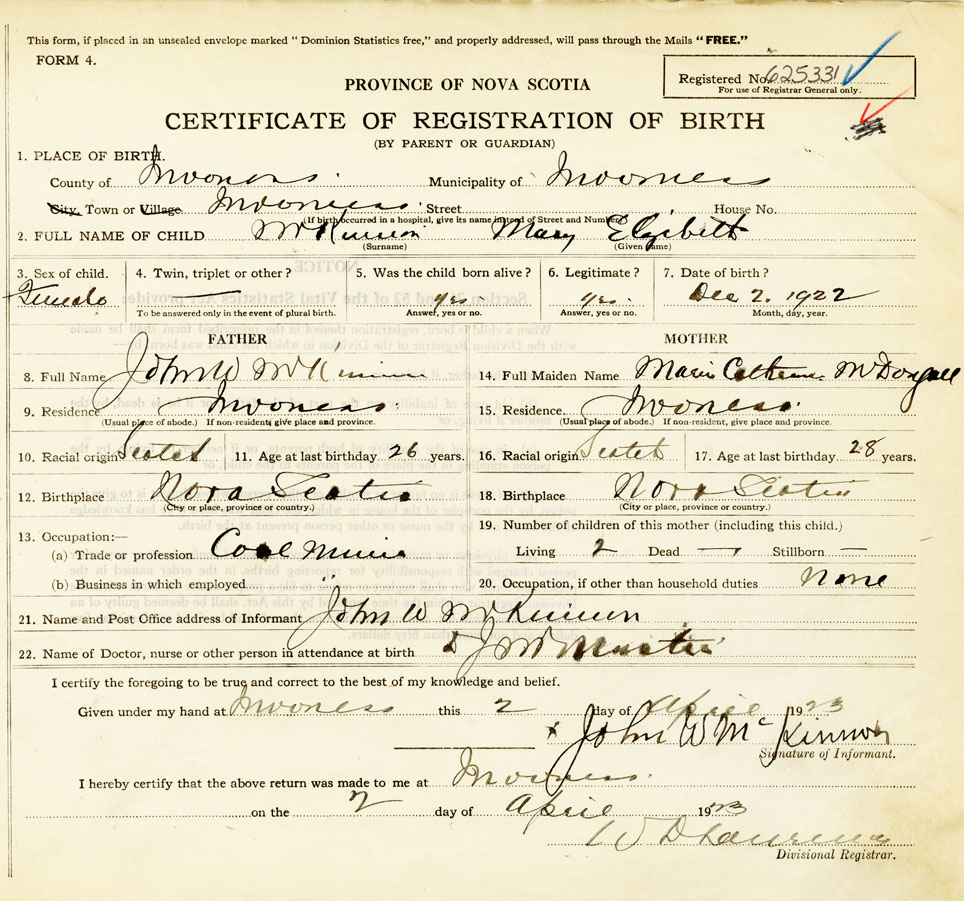 This form, if placed in an unsealed envelope marked “Dominion Statistics free,” and properly addressed, will pass through the Mails “FREE.”
FORM 4.
Registered No. 625331
For use of Registrar General only.
PROVINCE OF NOVA SCOTIA
CERTIFICATE OF REGISTRATION OF BIRTH
(BY PARENT OR GUARDIAN)
1. PLACE OF BIRTH.
County of Inverness. Municipality of Inverness
City, Town or Village Inverness. Street House No.
(If birth occurred in a hospital, give its name instead of Street and Number)
2. FULL NAME OF CHILD McKinnon Mary Elizibeth
(Surname) (Given name)
3. Sex of child. 4. Twin, triplet or other? 5. Was the child born alive? 6. Legitimate? 7. Date of birth?
Female — yes. yes. Dec 2. 1922
To be answered only in the event of plural birth. Answer, yes or no. Answer, yes or no. Month, day, year.
FATHER MOTHER
8. Full Name John W McKinnon 14. Full Maiden Name Marie McDougall
9. Residence Inverness. 15. Residence. Inverness.
(Usual place of abode.) If non-resident, give place and province. (Usual place of abode.) If non-resident, give place and province.
10. Racial origin Scotch 11. Age at last birthday 26 years. 16. Racial origin Scotch 17. Age at last birthday 28 years.
12. Birthplace Nova Scotia 18. Birthplace Nova Scotia
(City or place, province or country.) (City or place, province or country.)
19. Number of children of this mother (including this child.)
13. Occupation:—
(a) Trade or profession Coal Miner Living 2 Dead — Stillborn —
(b) Business in which employed " 20. Occupation, if other than household duties None
21. Name and Post Office address of Informant John W McKinnon
22. Name of Doctor, nurse or other person in attendance at birth
I certify the foregoing to be true and correct to the best of my knowledge and belief.
Given under my hand at Inverness this 2 day of April 1923
x John W McKinnon
Signature of Informant.
I hereby certify that the above return was made to me at Inverness.
on the 2 day of April 1923
W D Lawrence
Divisional Registrar.